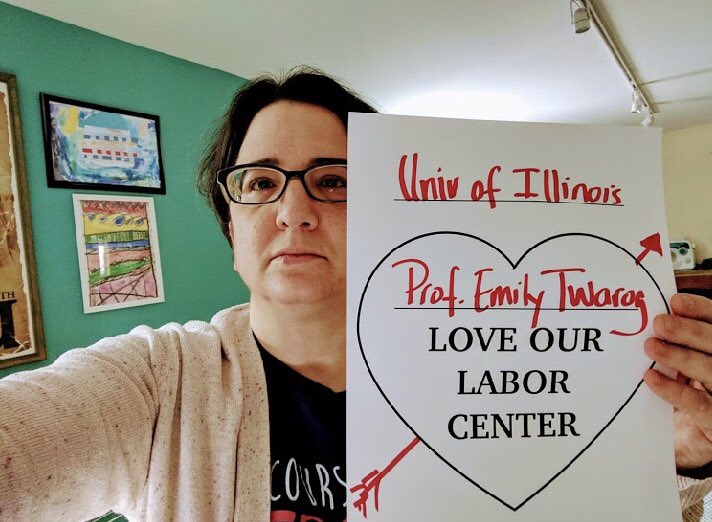 Univ of Illinois
Prof. Emily Twarog
LOVE OUR
LABOR
CENTER
COURS
TH